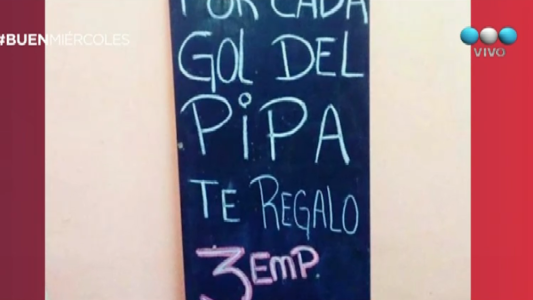 #BUENMIÉRCOLES
VIVO
POR CADA
GOL DEL
PiPA
TE REGALO
3 EMP.